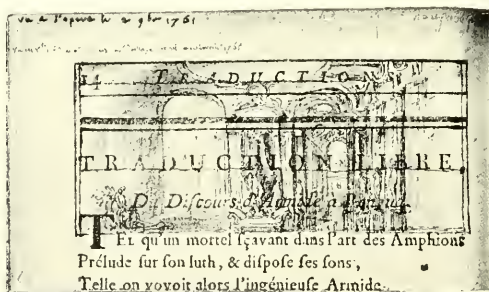 vu a l'opera le 2 9bre 1761
14 TRADUCTION
TRADUCTION LIBRE,
Du Discours d'Armide à
TEl qu'un mortel sçavant dans l'art des Amphions
Prélude sur son luth, & dispose ses sons,
Telle on voyoit alors l'ingénieuse Armide